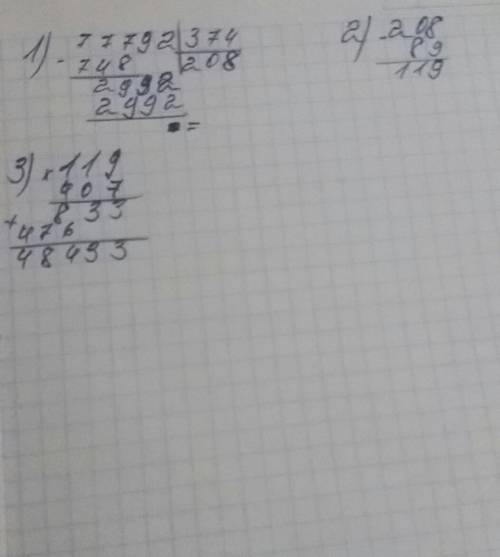 1) - 77792 374
748 208
2992
2992
=
2) - 208
89
119
3) × 119
407
833
+ 476
48493